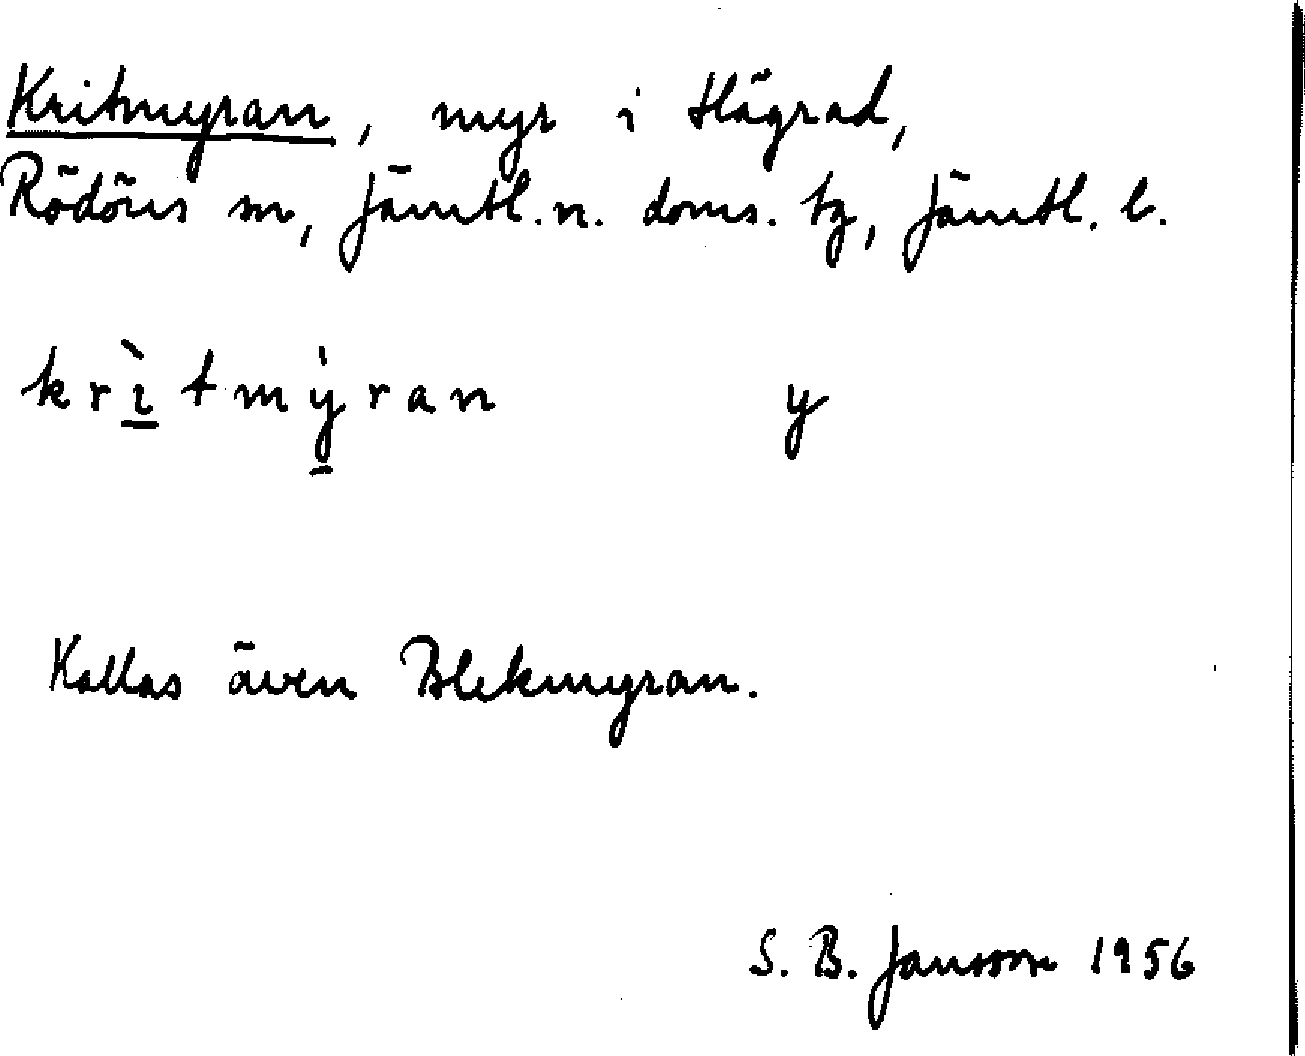 Kritmyran, myr i Hägrad,
Rödöns sn, Jämtl. n. doms. tg, Jämtl. l.
krı̀tmy̍ran y
Kallas även Blekmyran.
S. B. Jansson 1956